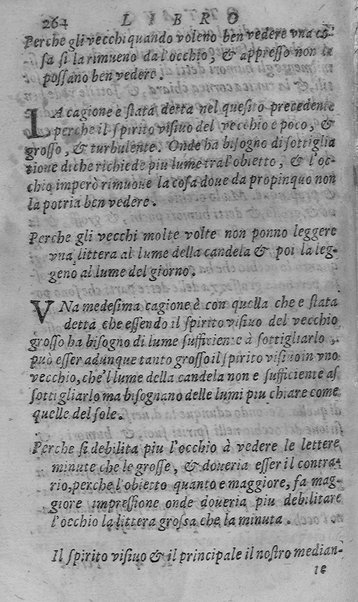 264 LIBRO
Perche gli vecchi quando voleno ben vedere vna co-
sa si la rimueno da l'occhio, & appresso non la
possano ben vedere.
LA cagione e stata detta nel quesito precedente
perche il spirito visiuo del vecchio e poco, &
grosso, & turbulente. Onde ha bisogno di sottiglia
tione di che richiede piu lume tra l'obietto, & l'oc-
chio imperò rimuoue la cosa doue da propinquo non
la potria ben vedere.
Perche gli vecchi molte volte non ponno leggere
vna littera al lume della candela & poi la leg-
geno al lume del giorno.
VNa medesima cagione è con quella che e stata
detta che essendo il spirito visiuo del vecchio
grosso ha bisogno di lume sufficiente à sottigliarlo,
può esser adunque tanto grosso il spirito visiuo in vno
vecchio, che'l lume della candela non e sufficiente al
sottigliarlo ma bisognano delle lumi piu chiare come
quelle del sole.
Perche si debilita piu l'occhio à vedere le lettere
minute che le grosse, & doueria esser il contra-
rio, perche l'obietto quanto e maggiore, fa mag-
giore impressione onde doueria piu debilitare
l'occhio la littera grossa che la minuta.
Il spirito visiuo & il principale il nostro median-
te